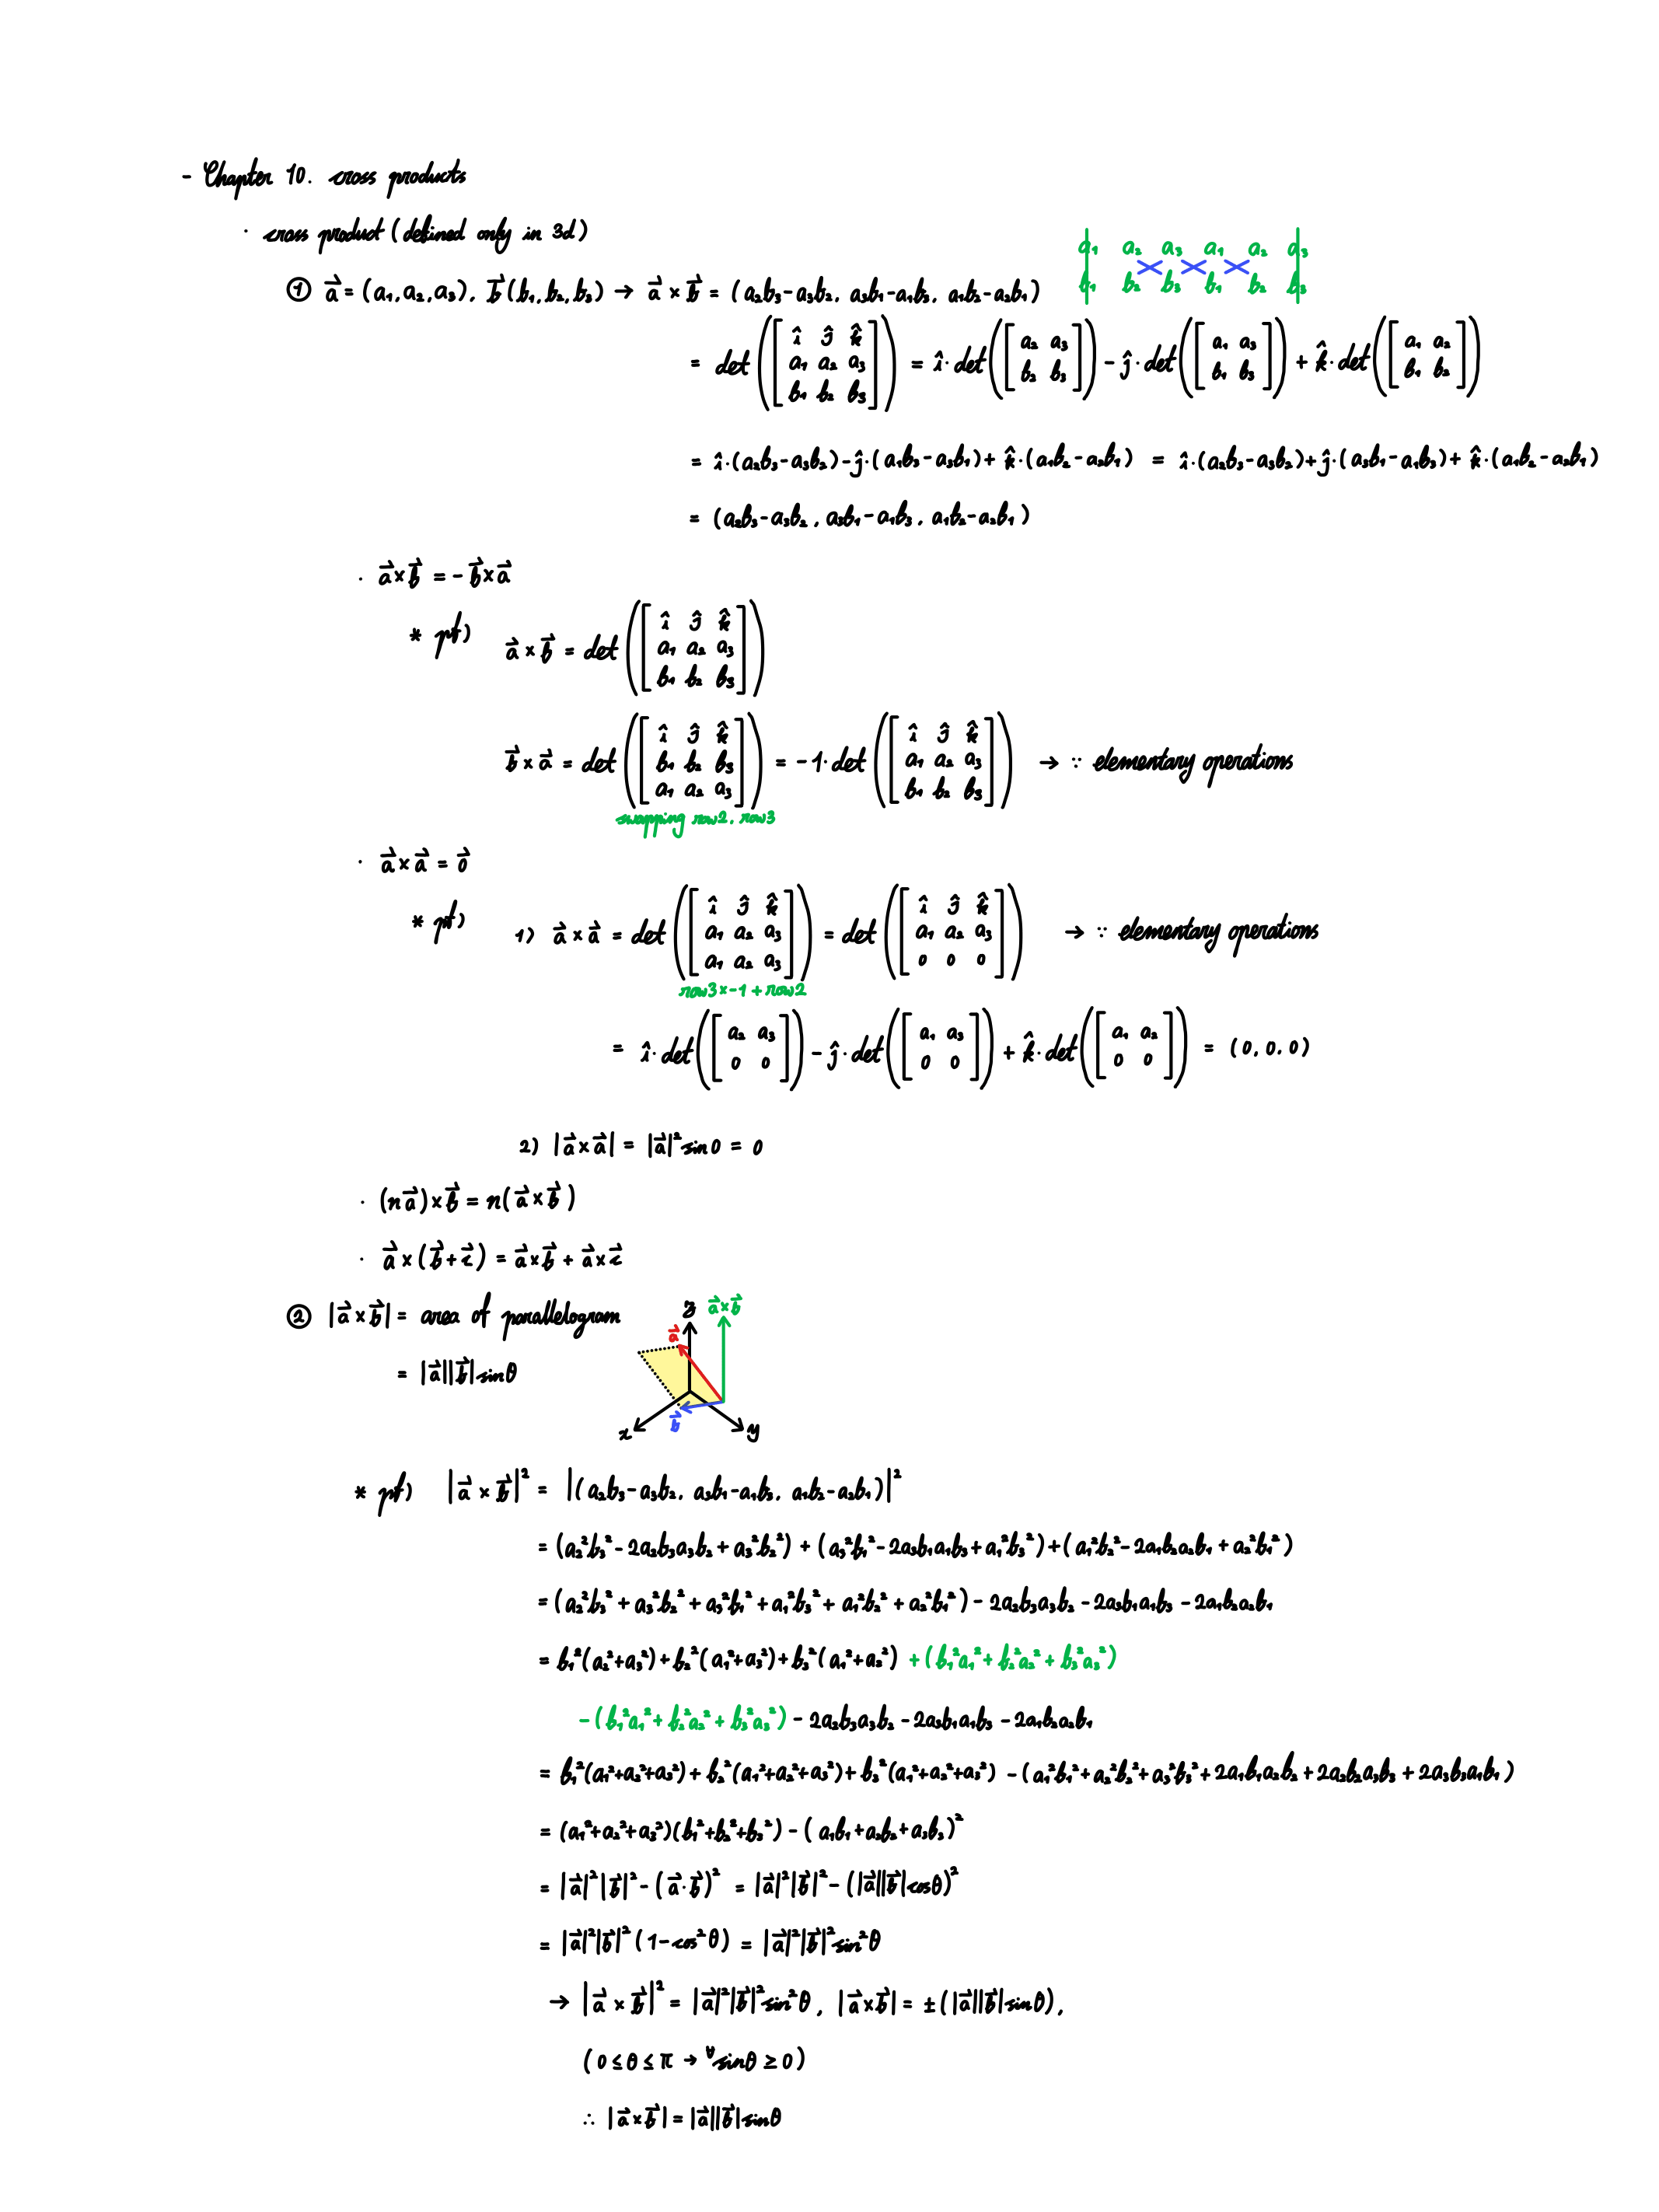 - Chapter 10. cross products
· cross product (defined only in 3d)
a₁ a₂ a₃ a₁ a₂ a₃
b₁ b₂ b₃ b₁ b₂ b₃
① a⃗ = (a₁, a₂, a₃), b⃗ (b₁, b₂, b₃) → a⃗ × b⃗ = (a₂b₃-a₃b₂, a₃b₁-a₁b₃, a₁b₂-a₂b₁)
= det([î ĵ k̂; a₁ a₂ a₃; b₁ b₂ b₃]) = î·det([a₂ a₃; b₂ b₃]) - ĵ·det([a₁ a₃; b₁ b₃]) + k̂·det([a₁ a₂; b₁ b₂])
= î·(a₂b₃-a₃b₂) - ĵ·(a₁b₃-a₃b₁) + k̂·(a₁b₂-a₂b₁) = î·(a₂b₃-a₃b₂) + ĵ·(a₃b₁-a₁b₃) + k̂·(a₁b₂-a₂b₁)
= (a₂b₃-a₃b₂, a₃b₁-a₁b₃, a₁b₂-a₂b₁)
· a⃗×b⃗ = -b⃗×a⃗
* pf) a⃗ × b⃗ = det([î ĵ k̂; a₁ a₂ a₃; b₁ b₂ b₃])
b⃗ × a⃗ = det([î ĵ k̂; b₁ b₂ b₃; a₁ a₂ a₃]) = -1·det([î ĵ k̂; a₁ a₂ a₃; b₁ b₂ b₃]) → ∵ elementary operations
swapping row2, row3
· a⃗×a⃗ = 0⃗
* pf) 1) a⃗ × a⃗ = det([î ĵ k̂; a₁ a₂ a₃; a₁ a₂ a₃]) = det([î ĵ k̂; a₁ a₂ a₃; 0 0 0]) → ∵ elementary operations
row3×-1+row2
= î·det([a₂ a₃; 0 0]) - ĵ·det([a₁ a₃; 0 0]) + k̂·det([a₁ a₂; 0 0]) = (0, 0, 0)
2) |a⃗×a⃗| = |a⃗|²sin0 = 0
· (na⃗)×b⃗ = n(a⃗×b⃗)
· a⃗×(b⃗+c⃗) = a⃗×b⃗ + a⃗×c⃗
② |a⃗×b⃗| = area of parallelogram
= |a⃗||b⃗|sinθ
z a⃗×b⃗
a⃗
b⃗
x y
* pf) |a⃗ × b⃗|² = |(a₂b₃-a₃b₂, a₃b₁-a₁b₃, a₁b₂-a₂b₁)|²
= (a₂²b₃²-2a₂b₃a₃b₂+a₃²b₂²) + (a₃²b₁²-2a₃b₁a₁b₃+a₁²b₃²) + (a₁²b₂²-2a₁b₂a₂b₁+a₂²b₁²)
= (a₂²b₃²+a₃²b₂²+a₃²b₁²+a₁²b₃²+a₁²b₂²+a₂²b₁²) - 2a₂b₃a₃b₂ - 2a₃b₁a₁b₃ - 2a₁b₂a₂b₁
= b₁²(a₂²+a₃²)+b₂²(a₁²+a₃²)+b₃²(a₁²+a₂²) + (b₁²a₁²+b₂²a₂²+b₃²a₃²)
- (b₁²a₁²+b₂²a₂²+b₃²a₃²) - 2a₂b₃a₃b₂ - 2a₃b₁a₁b₃ - 2a₁b₂a₂b₁
= b₁²(a₁²+a₂²+a₃²)+b₂²(a₁²+a₂²+a₃²)+b₃²(a₁²+a₂²+a₃²) - (a₁²b₁²+a₂²b₂²+a₃²b₃²+2a₁b₁a₂b₂+2a₂b₂a₃b₃+2a₃b₃a₁b₁)
= (a₁²+a₂²+a₃²)(b₁²+b₂²+b₃²) - (a₁b₁+a₂b₂+a₃b₃)²
= |a⃗|²|b⃗|² - (a⃗·b⃗)² = |a⃗|²|b⃗|² - (|a⃗||b⃗|cosθ)²
= |a⃗|²|b⃗|²(1-cos²θ) = |a⃗|²|b⃗|²sin²θ
→ |a⃗ × b⃗|² = |a⃗|²|b⃗|²sin²θ, |a⃗×b⃗| = ±(|a⃗||b⃗|sinθ),
(0≤θ≤π → ∀sinθ≥0)
∴ |a⃗×b⃗| = |a⃗||b⃗|sinθ